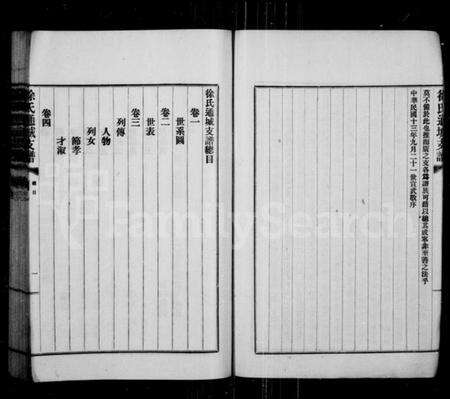 徐氏通城支譜
莫不備於此也推而廣之支各為譜其可藉以總其成寧非至善之法乎
中華民國十三年九月二十一世宣武敬序
徐氏通城支譜總目
卷一
世系圖
卷二
世表
卷三
列傳
人物
列女
節孝
才淑
卷四
徐氏通城支譜
總目
一
FamilySearch